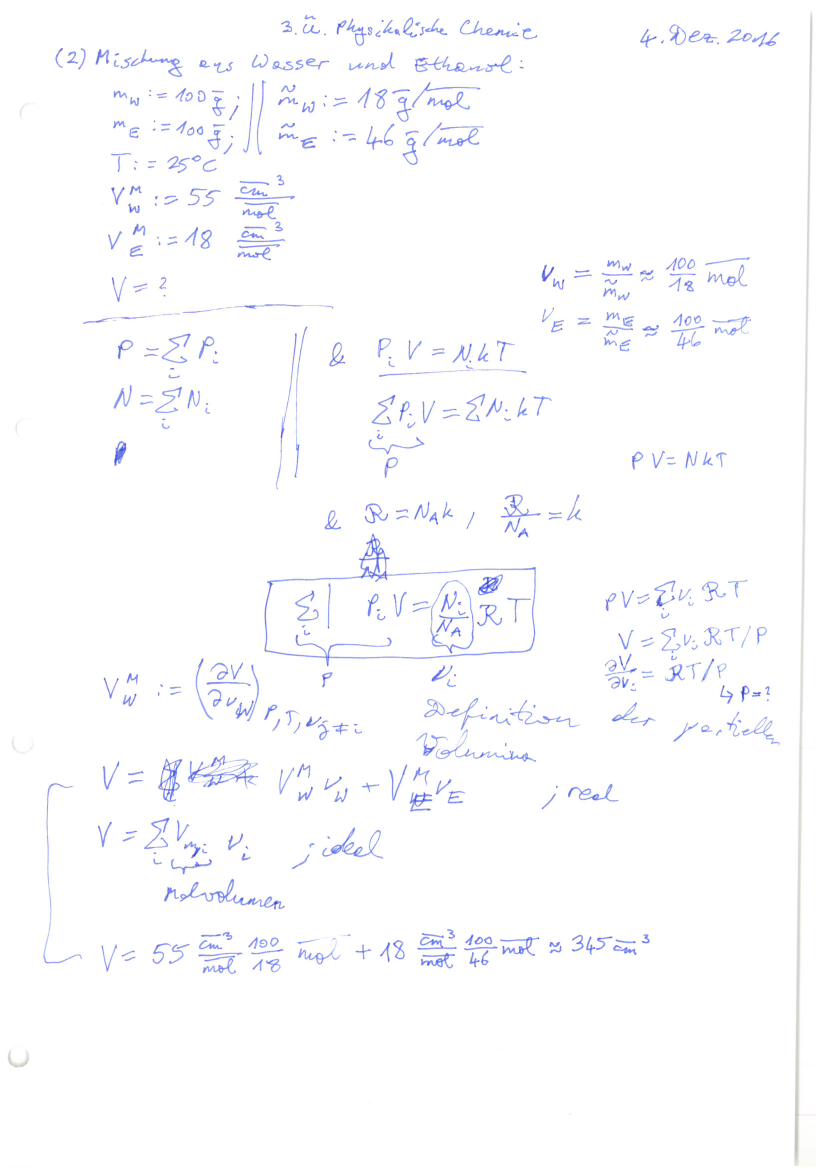 3. Ü. Physikalische Chemie 4. Dez. 2016
(2) Mischung aus Wasser und Ethanol:
m_W := 100 g̅; || m̃_W := 18 g̅/m̅o̅l̅
m_E := 100 g̅; || m̃_E := 46 g̅/m̅o̅l̅
T := 25°C
V_W^M := 55 c̅m̅³/m̅o̅l̅
V_E^M := 18 c̅m̅³/m̅o̅l̅
V = ?
ν_W = m_W/m̃_W ≈ 100/18 m̅o̅l̅
ν_E = m_E/m̃_E ≈ 100/46 m̅o̅l̅
P = Σ_i P_i || & P_i V = N_i kT
N = Σ_i N_i
Σ_i P_i V = Σ N_i kT
P
PV = NkT
& R = N_A k, R/N_A = k
Σ_i | P_i V = N_i/N_A R T
P ν_i
PV = Σ_i ν_i RT
V = Σ_i ν_i RT/P
∂V/∂ν_i = RT/P
↳ P = ?
V_W^M := (∂V/∂ν_W)_P,T,ν_j≠i Definition der partiellen
Volumina
V = V_W^M ν_W + V_E^M ν_E ; real
V = Σ_i V_m,i ν_i ; ideal
Molvolumen
V = 55 c̅m̅³/m̅o̅l̅ 100/18 m̅o̅l̅ + 18 c̅m̅³/m̅o̅l̅ 100/46 m̅o̅l̅ ≈ 345 c̅m̅³